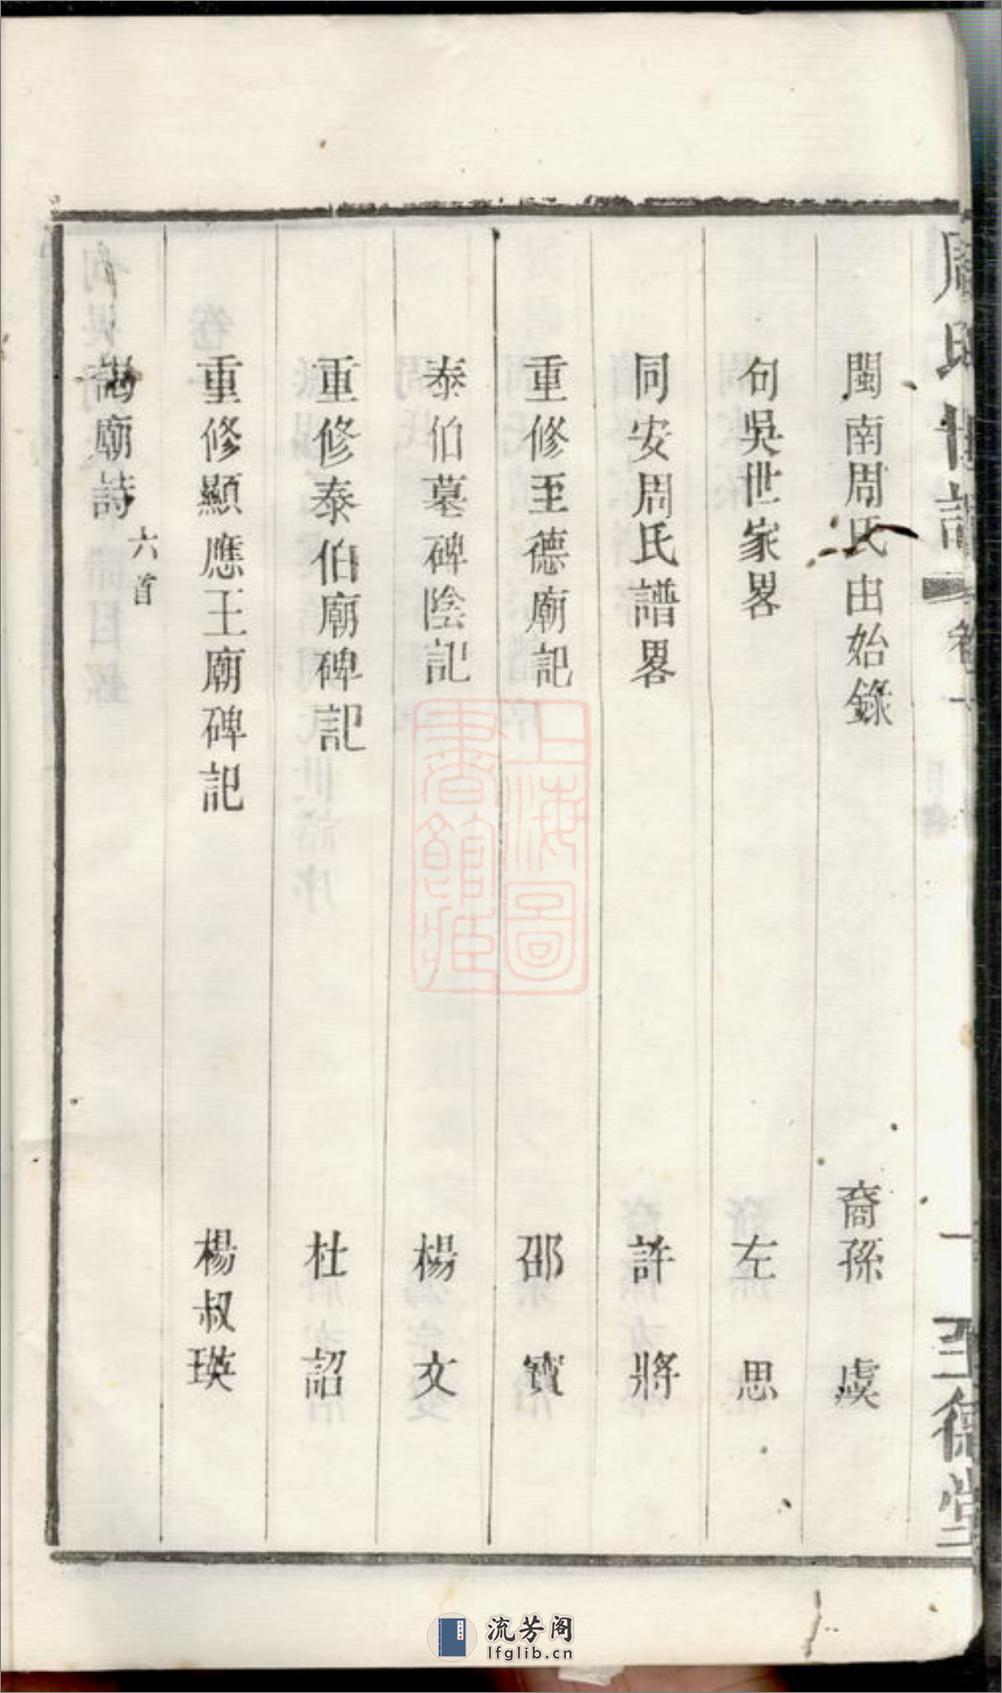 周氏世譜 卷一 一 至德堂
閩南周氏由始錄 裔孫 虔
句吳世家畧 左思
同安周氏譜畧 許將
重修至德廟記 邵寶
泰伯墓碑陰記 楊文
重修泰伯廟碑記 杜詔
重修顯應王廟碑記 楊叔瑛
謁廟詩 六首
上海圖
書館藏
流芳阁
lfglib.cn